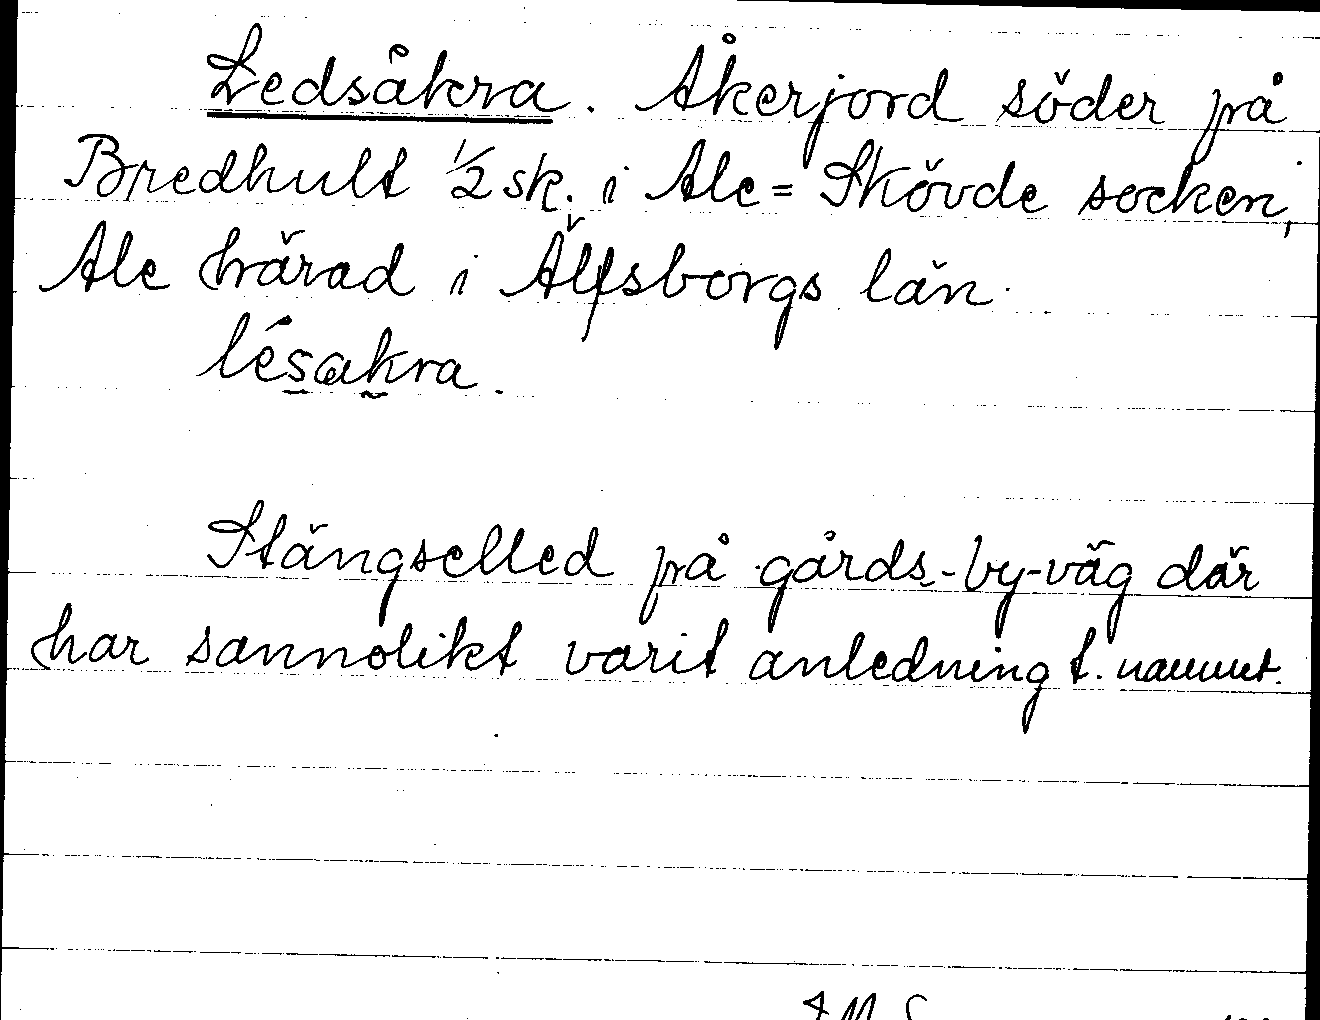 Ledsåkra. Åkerjord söder på
Bredhult 1/2 sk. i Ale=Skövde socken,
Ale härad i Älfsborgs län.
lésakra.
Stängselled på gårds-by-väg där
har sannolikt varit anledning t. namnet.